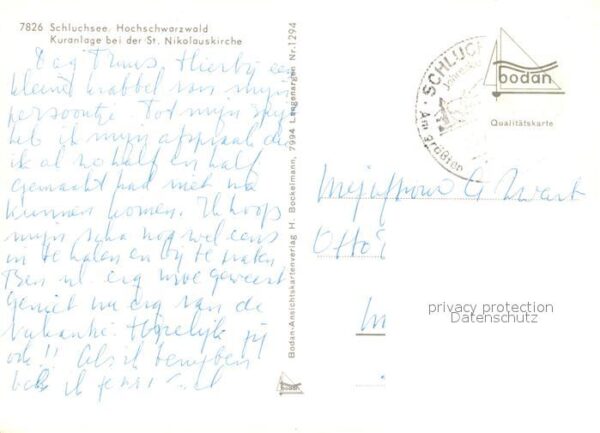 7826 Schluchsee. Hochschwarzwald
Kuranlage bei der St. Nikolauskirche
Dag Truus. Hierbij een
kleine krabbel van mijn
persoontje. Tot mijn spijt
heb ik mijn afspraak die
ik al zo half en half
gemaakt had niet na
kunnen komen. Ik hoop
mijn scha nog wel eens
in te halen en bij te praten
Ben nl. erg moe geweest.
Geniet nu erg van de
vakantie. Hopelijk jij
ook!! Als ik
ben ik
Bodan-Ansichtskartenverlag H. Bockelmann, 7994 Langenargen Nr. 1294
SCHLUCH
Am größten
bodan
Qualitätskarte
Mejuffrouw G Zwart
Otto
privacy protection
Datenschutz